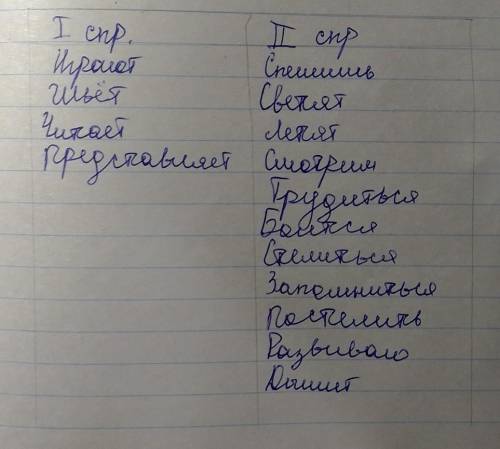 I спр.
Играют
Шьёт
Читает
Представляет
II спр
Спешишь
Светят
Лепят
Смотрим
Трудиться
Боится
Стелиться
Запомниться
Постелить
Развиваю
Дышит